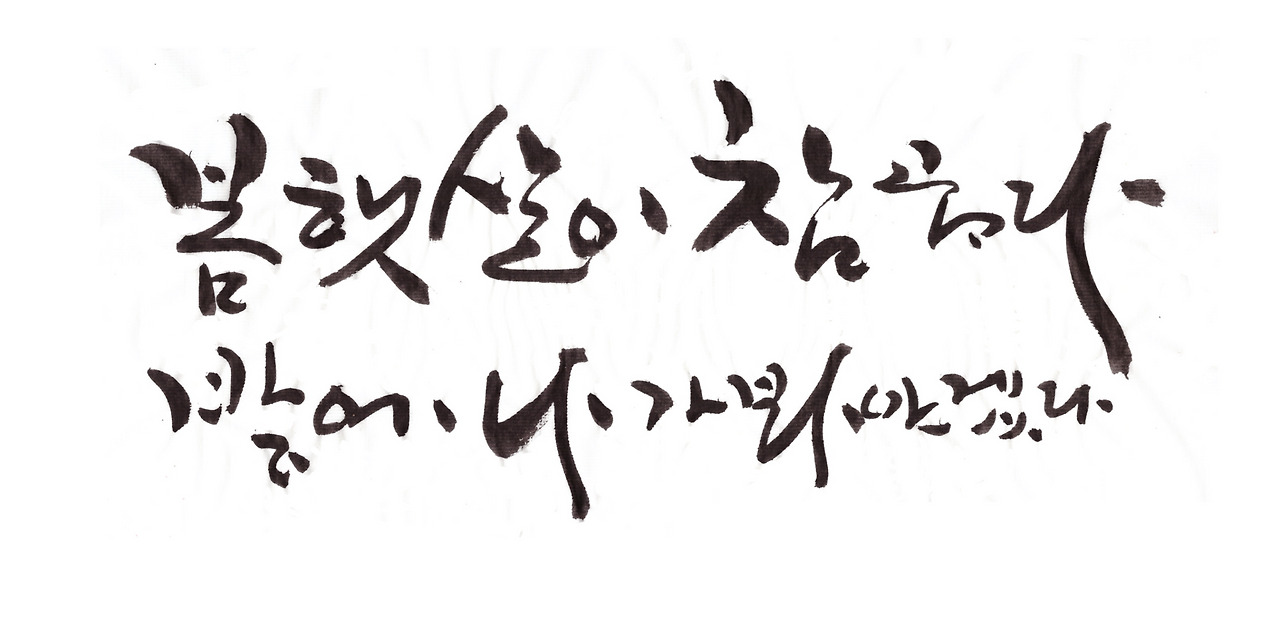 봄햇살이 참 곱다
밖에 나가봐야겠다